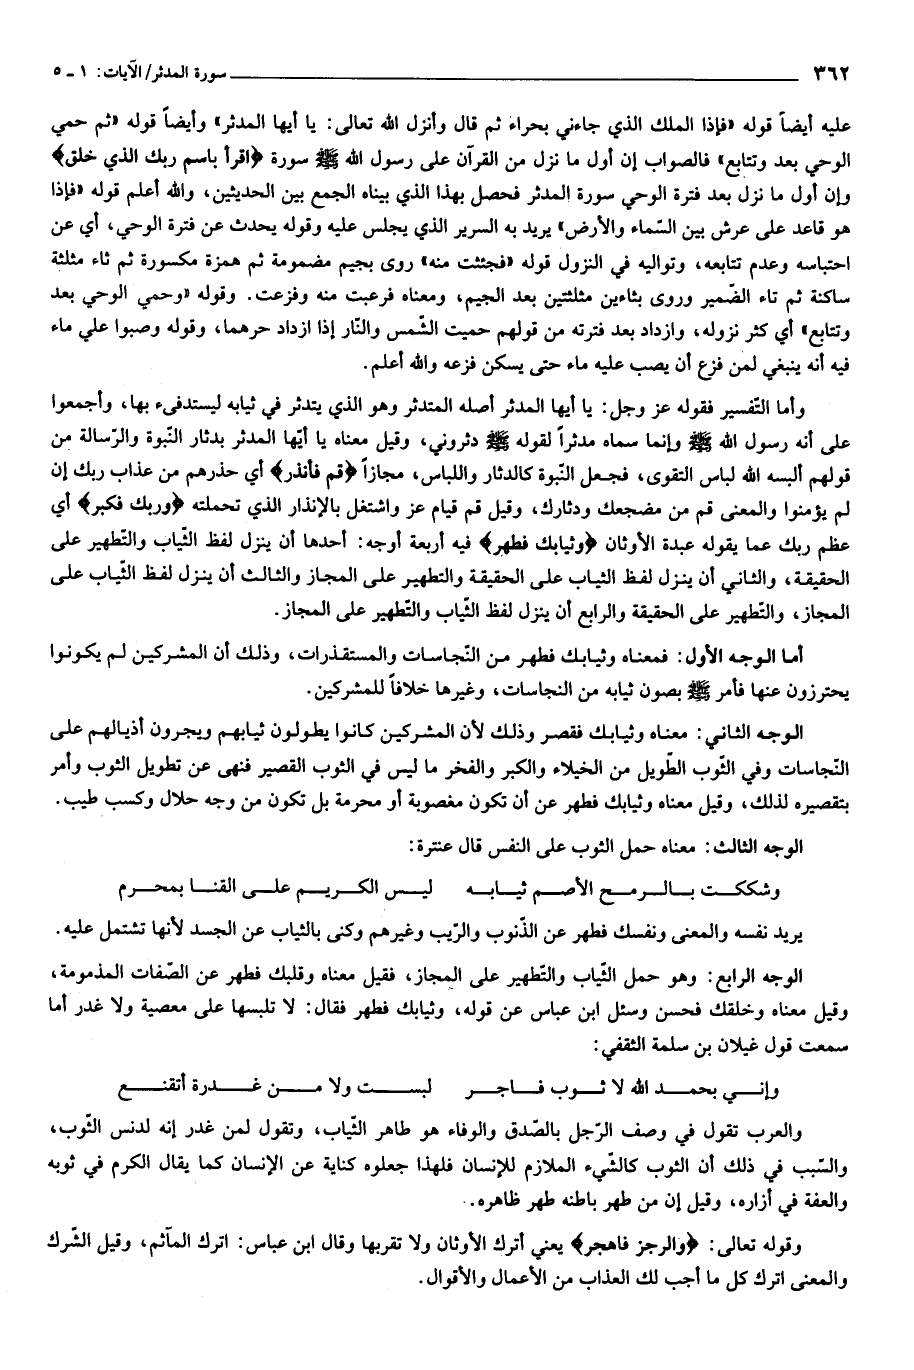 ٣٦٢ سورة المدثر/ الآيات: ١ - ٥
عليه أيضاً قوله «فإذا الملك الذي جاءني بحراء ثم قال وأنزل الله تعالى: يا أيها المدثر» وأيضاً قوله «ثم حمي
الوحي بعد وتتابع» فالصواب إن أول ما نزل من القرآن على رسول الله ﷺ سورة ﴿اقرأ باسم ربك الذي خلق﴾
وإن أول ما نزل بعد فترة الوحي سورة المدثر فحصل بهذا الذي بيناه الجمع بين الحديثين، والله أعلم قوله «فإذا
هو قاعد على عرش بين السّماء والأرض» يريد به السرير الذي يجلس عليه وقوله يحدث عن فترة الوحي، أي عن
احتباسه وعدم تتابعه، وتواليه في النزول قوله «فجئثت منه» روى بجيم مضمومة ثم همزة مكسورة ثم ثاء مثلثة
ساكنة ثم تاء الضّمير وروى بثاءين مثلثتين بعد الجيم، ومعناه فرعبت منه وفزعت. وقوله «وحمي الوحي بعد
وتتابع» أي كثر نزوله، وازداد بعد فترته من قولهم حميت الشّمس والنّار إذا ازداد حرهما، وقوله وصبوا علي ماء
فيه أنه ينبغي لمن فزع أن يصب عليه ماء حتى يسكن فزعه والله أعلم.
وأما التّفسير فقوله عز وجل: يا أيها المدثر أصله المتدثر وهو الذي يتدثر في ثيابه ليستدفىء بها، وأجمعوا
على أنه رسول الله ﷺ وإنما سماه مدثراً لقوله ﷺ دثروني، وقيل معناه يا أيّها المدثر بدثار النّبوة والرّسالة من
قولهم ألبسه الله لباس التقوى، فجعل النّبوة كالدثار واللباس، مجازاً ﴿قم فأنذر﴾ أي حذرهم من عذاب ربك إن
لم يؤمنوا والمعنى قم من مضجعك ودثارك، وقيل قم قيام عز واشتغل بالإنذار الذي تحملته ﴿وربك فكبر﴾ أي
عظم ربك عما يقوله عبدة الأوثان ﴿وثيابك فطهر﴾ فيه أربعة أوجه: أحدها أن ينزل لفظ الثّياب والتّطهير على
الحقيقة، والثاني أن ينزل لفظ الثياب على الحقيقة والتطهير على المجاز والثالث أن ينزل لفظ الثّياب على
المجاز، والتّطهير على الحقيقة والرابع أن ينزل لفظ الثّياب والتّطهير على المجاز.
أما الوجه الأول: فمعناه وثيابك فطهر من النّجاسات والمستقذرات، وذلك أن المشركين لم يكونوا
يحترزون عنها فأمر ﷺ بصون ثيابه من النجاسات، وغيرها خلافاً للمشركين.
الوجه الثاني: معناه وثيابك فقصر وذلك لأن المشركين كانوا يطولون ثيابهم ويجرون أذيالهم على
النّجاسات وفي الثّوب الطّويل من الخيلاء والكبر والفخر ما ليس في الثوب القصير فنهى عن تطويل الثوب وأمر
بتقصيره لذلك، وقيل معناه وثيابك فطهر عن أن تكون مغصوبة أو محرمة بل تكون من وجه حلال وكسب طيب.
الوجه الثالث: معناه حمل الثوب على النفس قال عنترة:
وشككت بالرمح الأصم ثيابه ليس الكريم على القنا بمحرم
يريد نفسه والمعنى ونفسك فطهر عن الذّنوب والرّيب وغيرهم وكنى بالثياب عن الجسد لأنها تشتمل عليه.
الوجه الرابع: وهو حمل الثّياب والتّطهير على المجاز، فقيل معناه وقلبك فطهر عن الصّفات المذمومة،
وقيل معناه وخلقك فحسن وسئل ابن عباس عن قوله، وثيابك فطهر فقال: لا تلبسها على معصية ولا غدر أما
سمعت قول غيلان بن سلمة الثقفي:
وإني بحمد الله لا ثوب فاجر لبست ولا من غدرة أتقنع
والعرب تقول في وصف الرّجل بالصّدق والوفاء هو طاهر الثّياب، وتقول لمن غدر إنه لدنس الثّوب،
والسّبب في ذلك أن الثوب كالشّيء الملازم للإنسان فلهذا جعلوه كناية عن الإنسان كما يقال الكرم في ثوبه
والعفة في أزاره، وقيل إن من طهر باطنه طهر ظاهره.
وقوله تعالى: ﴿والرجز فاهجر﴾ يعني أترك الأوثان ولا تقربها وقال ابن عباس: اترك المآثم، وقيل الشّرك
والمعنى اترك كل ما أجب لك العذاب من الأعمال والأقوال.